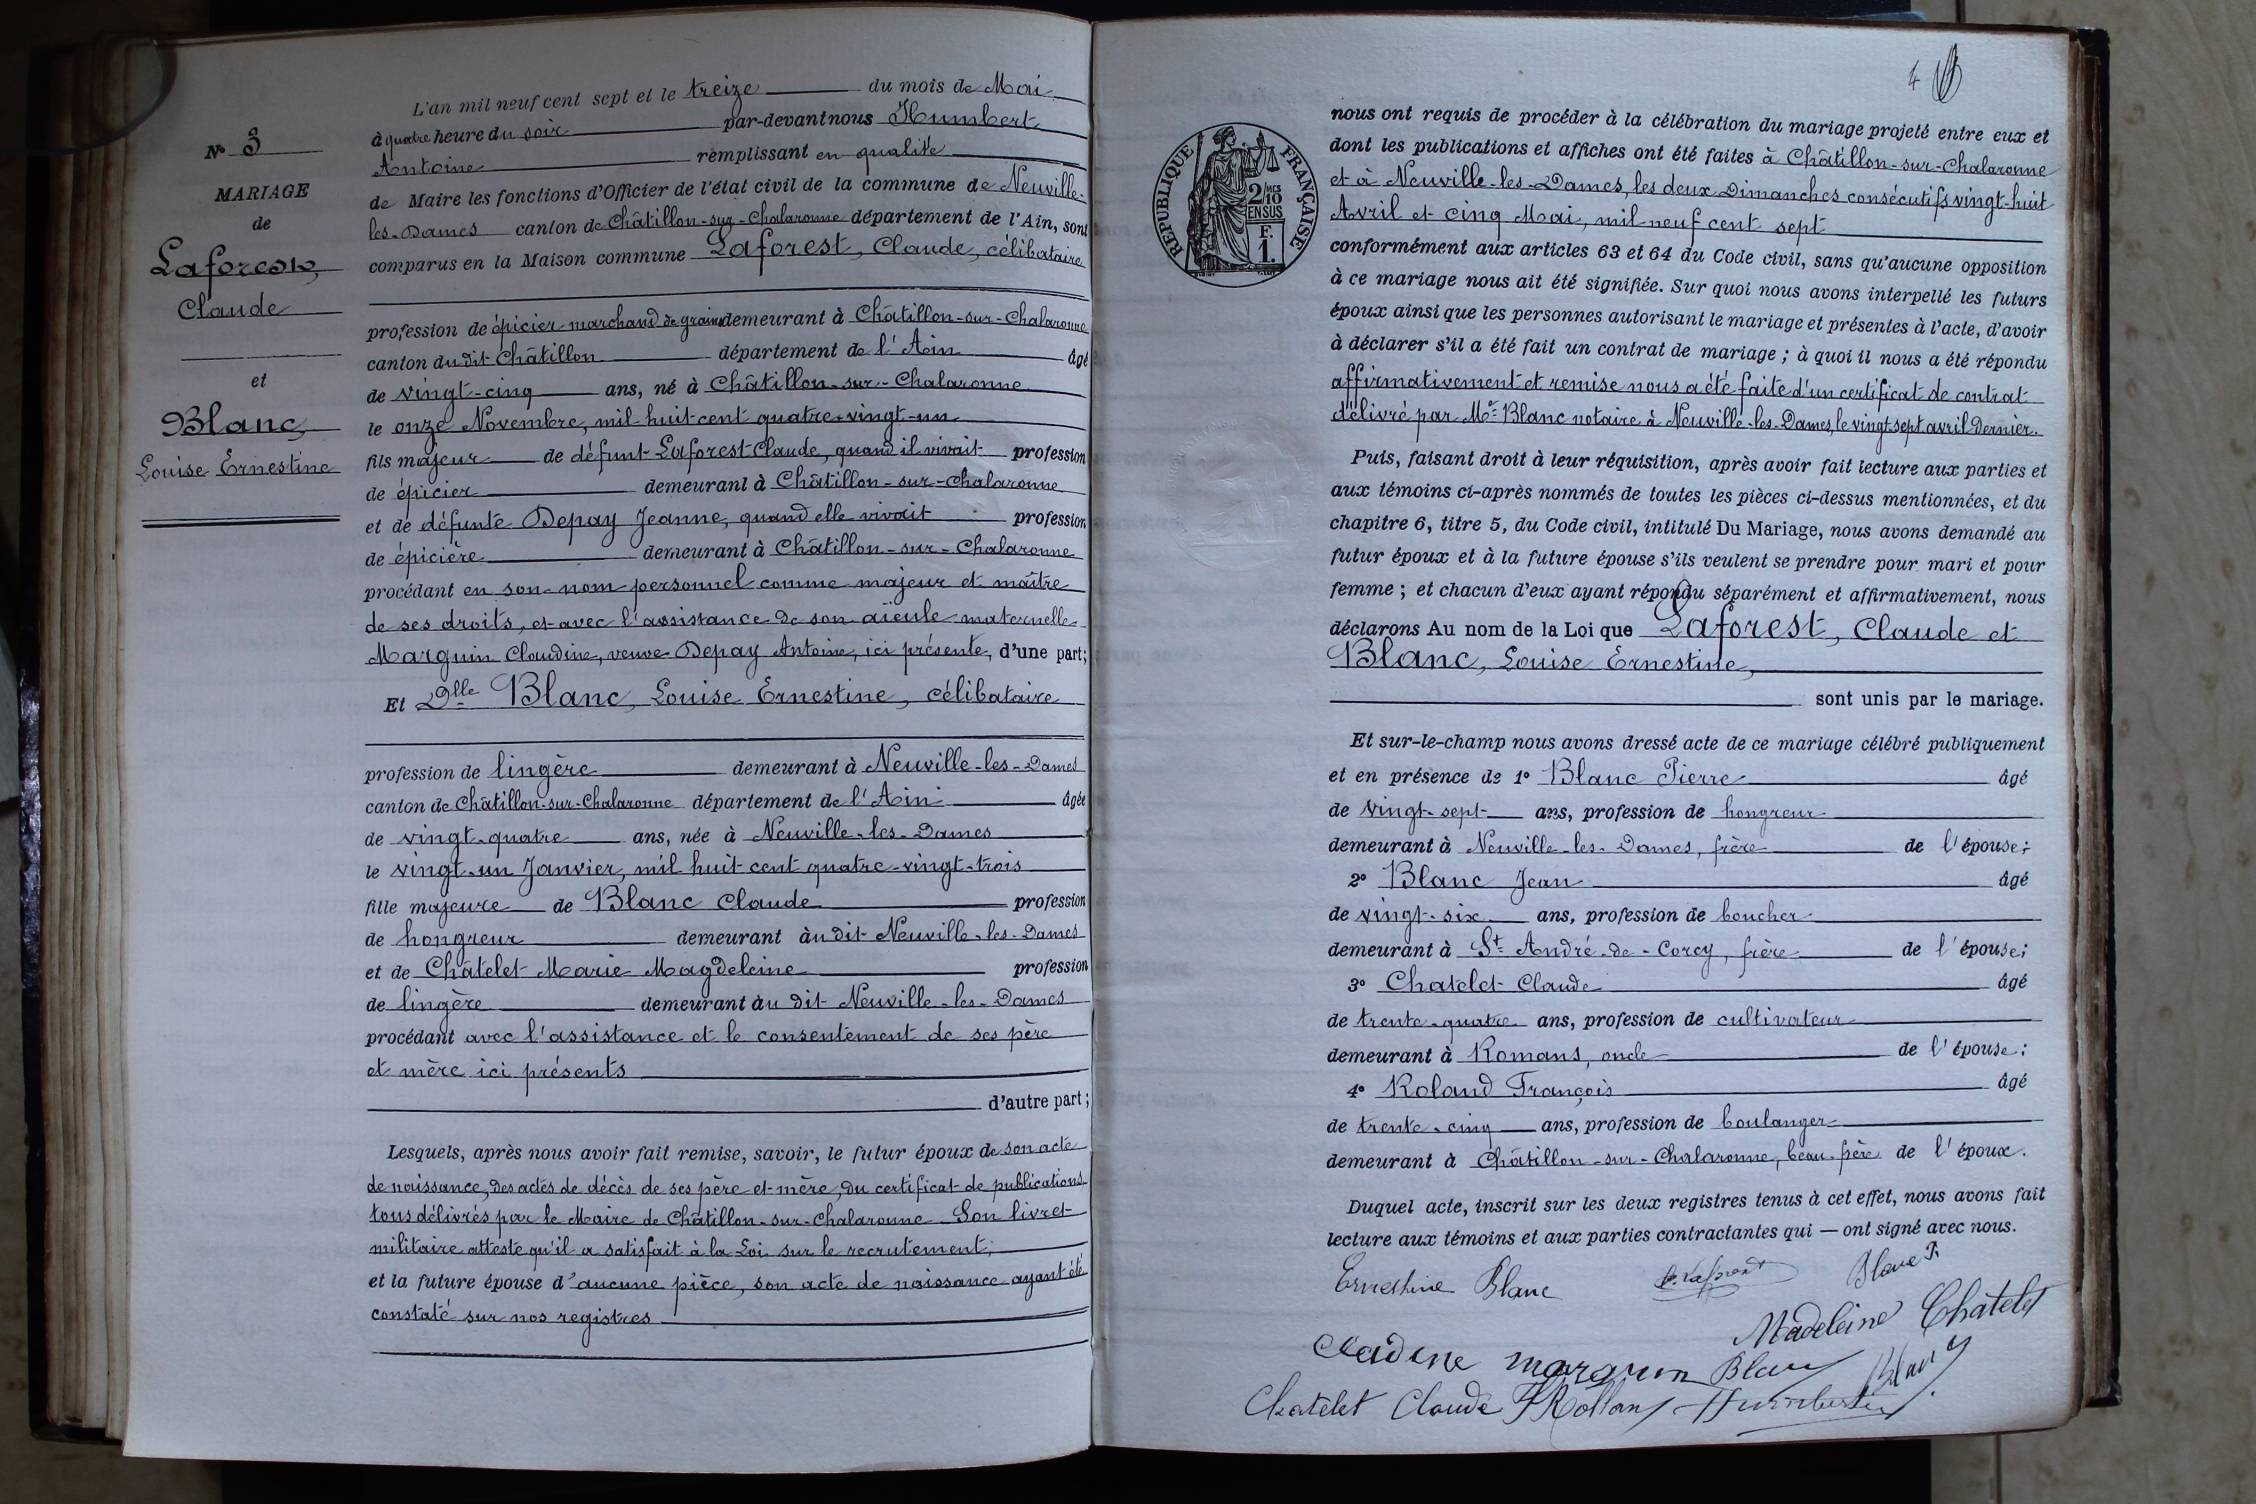 L'an mil neuf cent sept et le treize du mois de Mai
à quatre heure du soir par-devant nous Humbert
Antoine remplissant en qualité
de Maire les fonctions d'Officier de l'état civil de la commune de Neuville-
les-Dames canton de Châtillon-sur-Chalaronne département de l'Ain, sont
comparus en la Maison commune Laforest, Claude, célibataire
N° 3
MARIAGE
de
Laforest,
Claude
et
Blanc,
Louise Ernestine
profession de épicier marchand de grains demeurant à Châtillon-sur-Chalaronne
canton du dit Châtillon département de l'Ain âgé
de vingt-cinq ans, né à Châtillon-sur-Chalaronne
le onze Novembre, mil huit cent quatre-vingt-un
fils majeur de défunt Laforest Claude, quand il vivait profession
de épicier demeurant à Châtillon-sur-Chalaronne
et de défunte Depay Jeanne, quand elle vivait profession
de épicière demeurant à Châtillon-sur-Chalaronne
procédant en son nom personnel comme majeur et maître
de ses droits, et avec l'assistance de son aïeule maternelle
Marguin Claudine, veuve Depay Antoine, ici présente, d'une part;
Et Dlle Blanc, Louise Ernestine, célibataire
profession de lingère demeurant à Neuville-les-Dames
canton de Châtillon-sur-Chalaronne département de l'Ain âgée
de vingt-quatre ans, née à Neuville-les-Dames
le vingt-un Janvier, mil huit cent quatre-vingt-trois
fille majeure de Blanc Claude profession
de hongreur demeurant au dit Neuville-les-Dames
et de Châtelet Marie Magdeleine profession
de lingère demeurant au dit Neuville-les-Dames
procédant avec l'assistance et le consentement de ses père
et mère ici présents
d'autre part;
Lesquels, après nous avoir fait remise, savoir, le futur époux de son acte
de naissance, des actes de décès de ses père et mère, du certificat de publications
tous délivrés par le Maire de Châtillon-sur-Chalaronne. Son livret
militaire atteste qu'il a satisfait à la Loi sur le recrutement;
et la future épouse d'aucune pièce, son acte de naissance ayant été
constaté sur nos registres
4
RÉPUBLIQUE FRANÇAISE
2/10 MES
EN SUS
F.
1.
nous ont requis de procéder à la célébration du mariage projeté entre eux et
dont les publications et affiches ont été faites à Châtillon-sur-Chalaronne
et à Neuville-les-Dames, les deux Dimanches consécutifs vingt-huit
Avril et cinq Mai, mil neuf cent sept
conformément aux articles 63 et 64 du Code civil, sans qu'aucune opposition
à ce mariage nous ait été signifiée. Sur quoi nous avons interpellé les futurs
époux ainsi que les personnes autorisant le mariage et présentes à l'acte, d'avoir
à déclarer s'il a été fait un contrat de mariage; à quoi il nous a été répondu
affirmativement et remise nous a été faite d'un certificat de contrat
délivré par Me Blanc notaire à Neuville-les-Dames, le vingt sept avril dernier.
Puis, faisant droit à leur réquisition, après avoir fait lecture aux parties et
aux témoins ci-après nommés de toutes les pièces ci-dessus mentionnées, et du
chapitre 6, titre 5, du Code civil, intitulé Du Mariage, nous avons demandé au
futur époux et à la future épouse s'ils veulent se prendre pour mari et pour
femme; et chacun d'eux ayant répondu séparément et affirmativement, nous
déclarons Au nom de la Loi que Laforest, Claude et
Blanc, Louise Ernestine,
sont unis par le mariage.
Et sur-le-champ nous avons dressé acte de ce mariage célébré publiquement
et en présence de 1° Blanc Pierre âgé
de vingt-sept ans, profession de hongreur
demeurant à Neuville-les-Dames, frère de l'épouse;
2° Blanc Jean âgé
de vingt-six ans, profession de boucher
demeurant à St André-de-Corcy, frère de l'épouse;
3° Chatelet Claude âgé
de trente-quatre ans, profession de cultivateur
demeurant à Romans, oncle de l'épouse;
4° Roland François âgé
de trente-cinq ans, profession de boulanger
demeurant à Châtillon-sur-Chalaronne, beau-frère de l'époux.
Duquel acte, inscrit sur les deux registres tenus à cet effet, nous avons fait
lecture aux témoins et aux parties contractantes qui — ont signé avec nous.
Ernestine Blanc C. Laforest Blanc P.
Madeleine Châtelet
Cladine marguin Blanc Blanc J
Chatelet Claude F Rolland Humbert